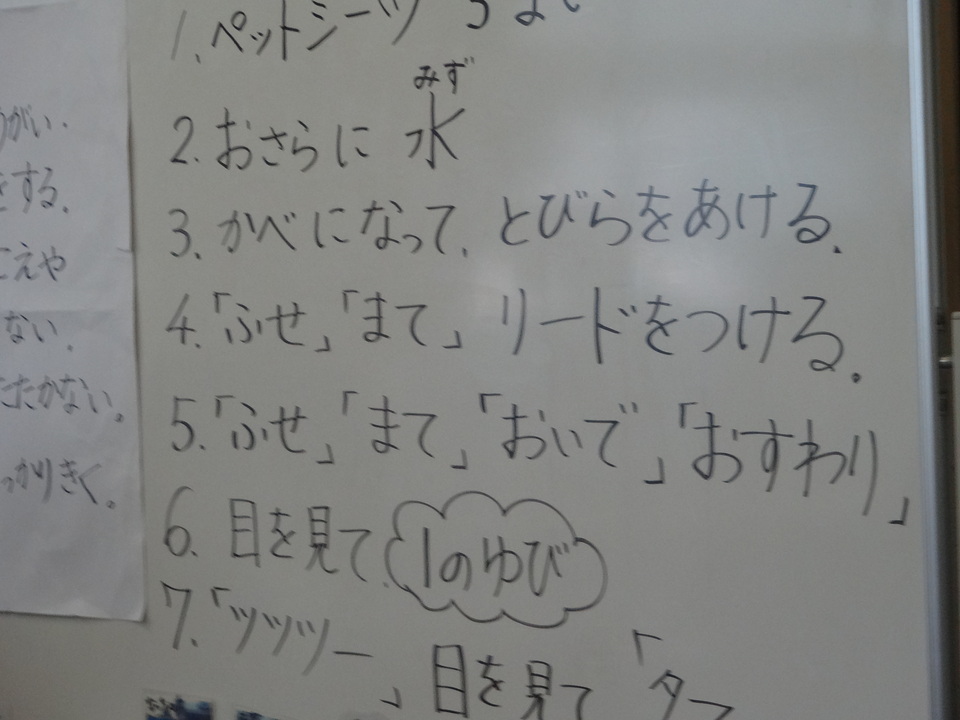 1. ペットシーツ
みず
2. おさらに 水
3. かべになって、とびらをあける。
4. 「ふせ」「まて」リードをつける。
5. 「ふせ」「まて」「おいで」「おすわり」
6. 目を見て、1のゆび
7. 「ツツツー」目を見て「ター
がい.
をする.
こえや
ない.
たたかない。
っかりきく。